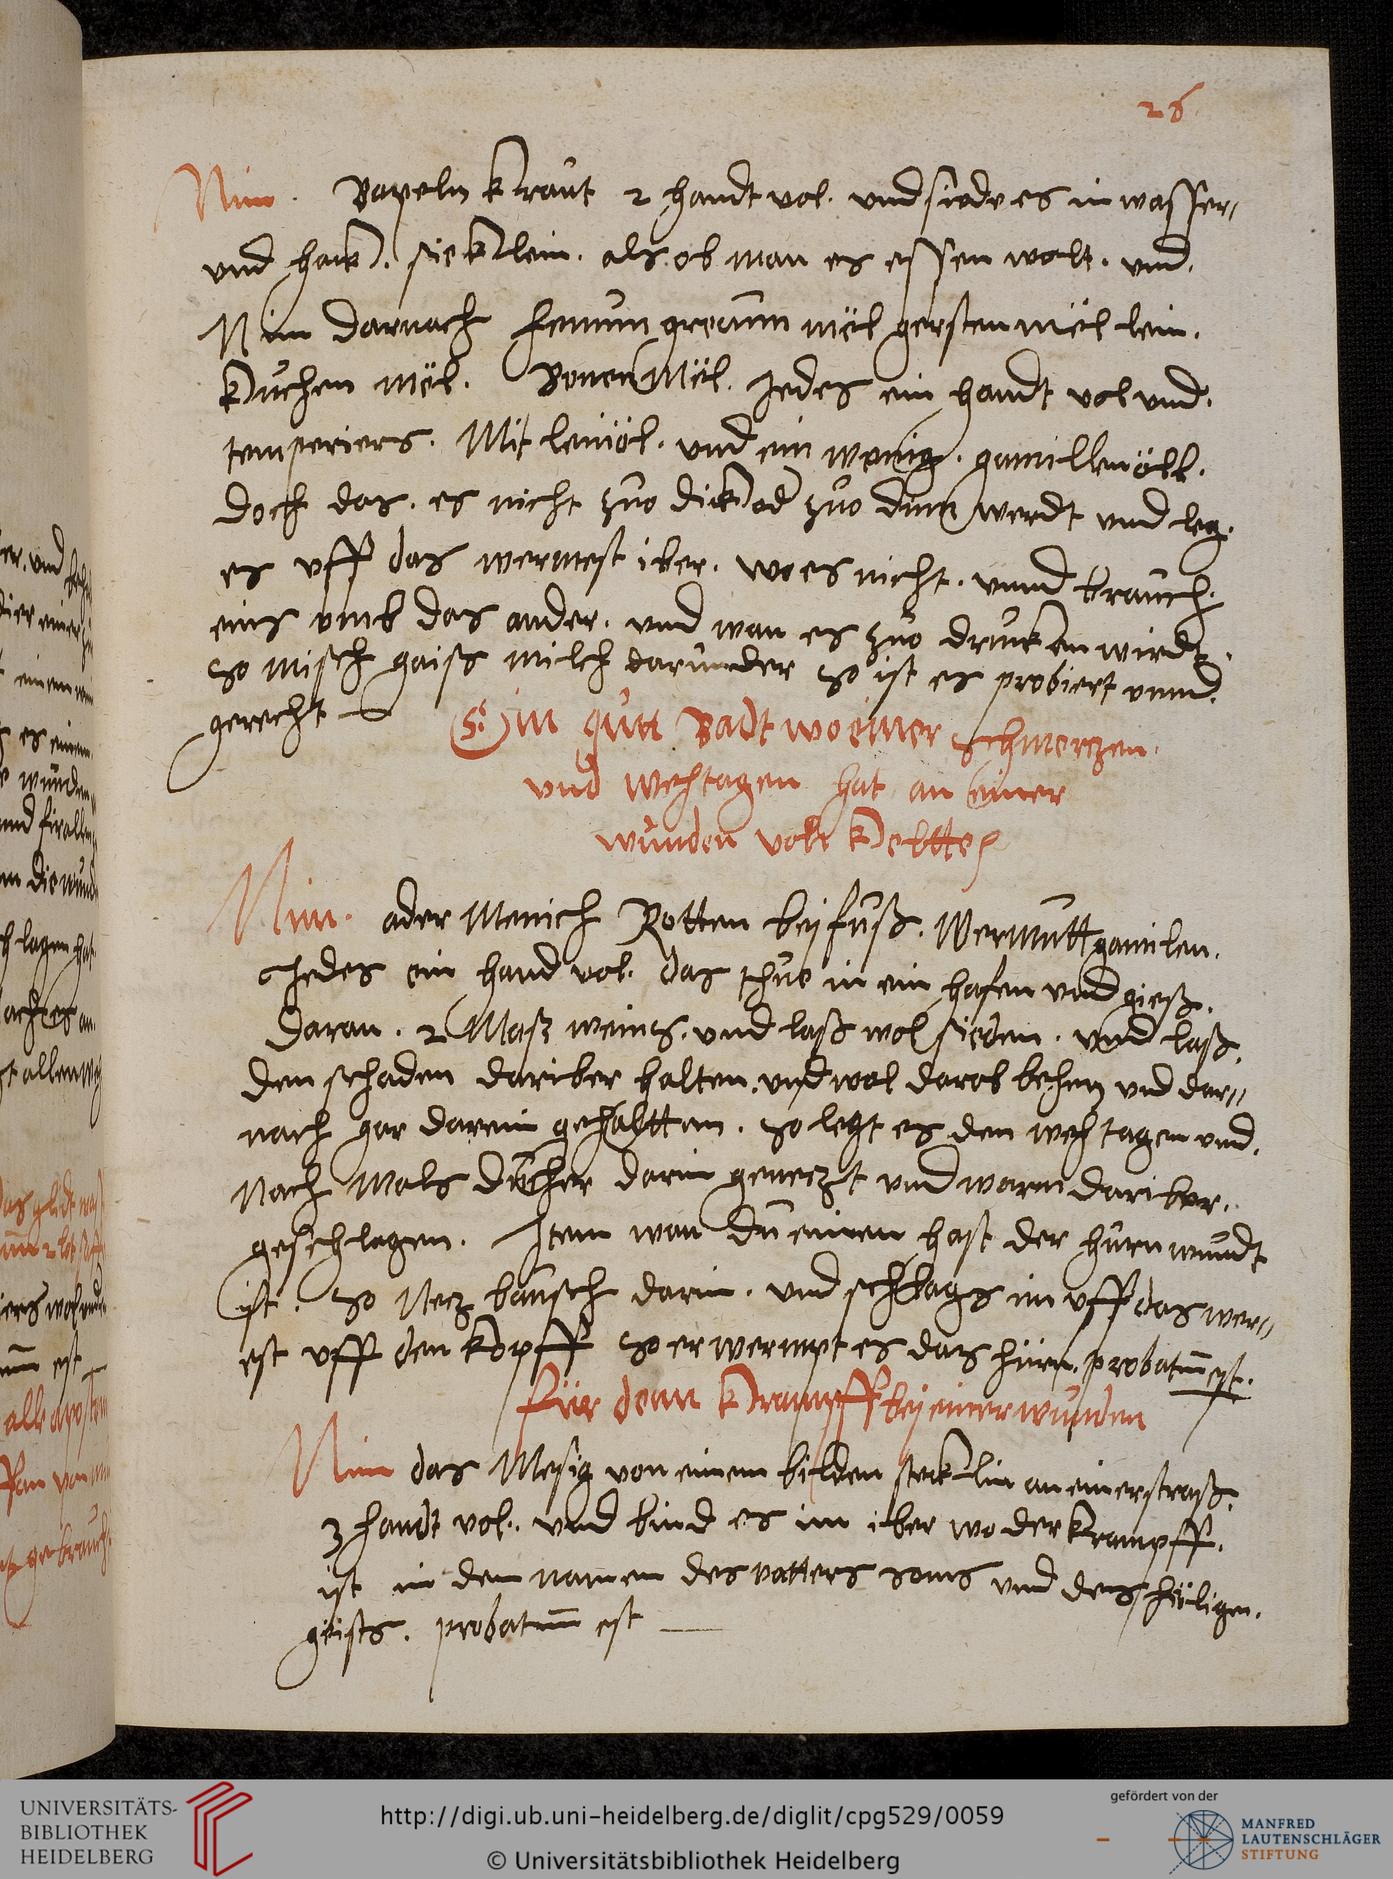 26
Nim. Bapeln kraut 2 handt vol. und siede es in wasser
und hack. sie klein. als ob man es essen wolt. und.
Nim darnach fenum grecum mël gersten mël lein.
kuchen mël. Bonen Mël. Jedes ein handt vol und.
temperiers. Mit leinöl. und ein wenig. gamillenöll.
doch das. es nicht zuo dick od zuo dinn werdt und leg.
es uff das wermest iber. wo es nicht. unnd brauch.
eins umb das ander. und wan es zuo drucken wirdt.
so misch gaiss milch darunder so ist es probiert unnd.
gerecht
Ein gutt Badt wo einer schmerczen.
und wehtagen hat an einer
wunden volr keltte
Nim. ader Menich Rotten beyfuß. Wermutt gamilen.
Jedes ein hand vol. das thue in ein hafen und gieß.
daran. 2 Mass weins. und laß wol sieden. und laß.
den schaden dariber halten. und wol darob behen und dar
nach gar darein gehaltten. so legt es den weh tagen und.
Nach Mals düecher darin geneczt und warm dariber.
geschlagen. Item wan du einen hast der hürn wundt
ist. so Necz bausch darin. und schlags im uff das wer
est uff den kopff so erwermpt es das hürn. probatum est.
für denn krampff bey einer wunden
Nim das Mesig von einem bilden stecklin an einer straß.
3 handt vol. und bind es im iber wo der krampff.
ist in dem namen des vatters sons und des hëiligen.
gëists. probatum est
er. und
einem
es einem
wunden
und
die wund
lagen hat
es an
allen
est
alle
von
gebrauch
UNIVERSITÄTS-
BIBLIOTHEK
HEIDELBERG
http://digi.ub.uni-heidelberg.de/diglit/cpg529/0059
© Universitätsbibliothek Heidelberg
gefördert von der
MANFRED
LAUTENSCHLÄGER
STIFTUNG